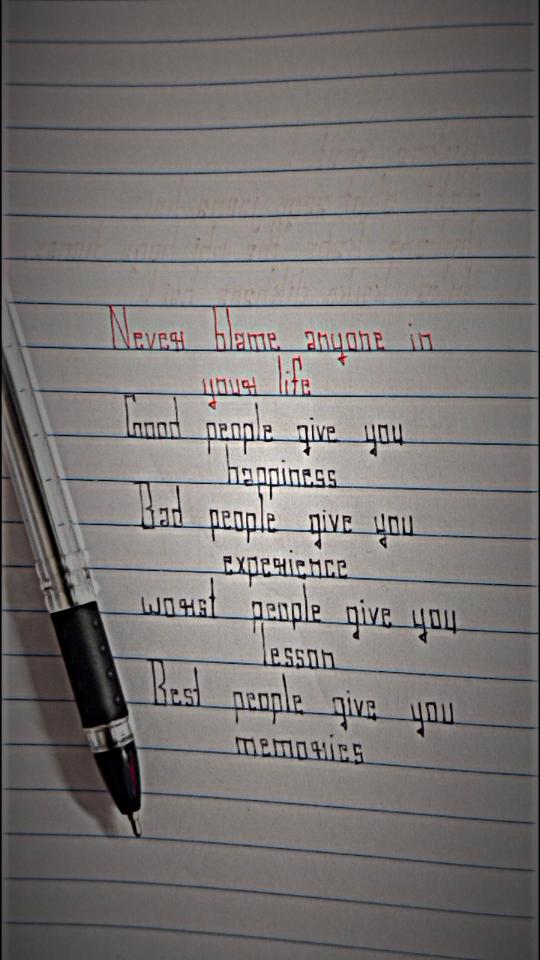 Never blame anyone in
your life
Good people give you
happiness
Bad people give you
experience
worst people give you
lesson
Best people give you
memories